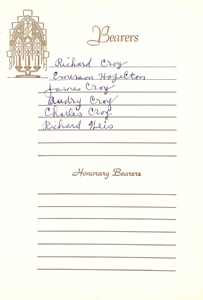 Bearers
Richard Croy
Emerson Hazelton
James Croy
Audry Croy
Charles Croy
Richard Heis
Honorary Bearers